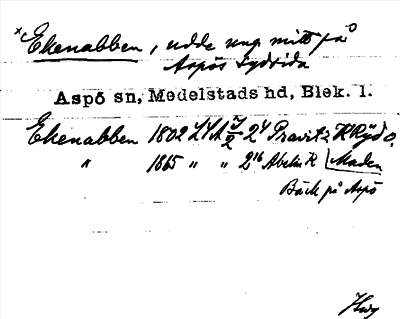 × Ekenabben, udde ung. mitt på
Aspös sydsida
Aspö sn, Medelstads hd, Blek. l.
Ekenabben 1802 LSA 2⁴ Pravitz K Ryd o.
" 1865 " " 2¹⁶ Abelin K Maden
Bäck på Aspö